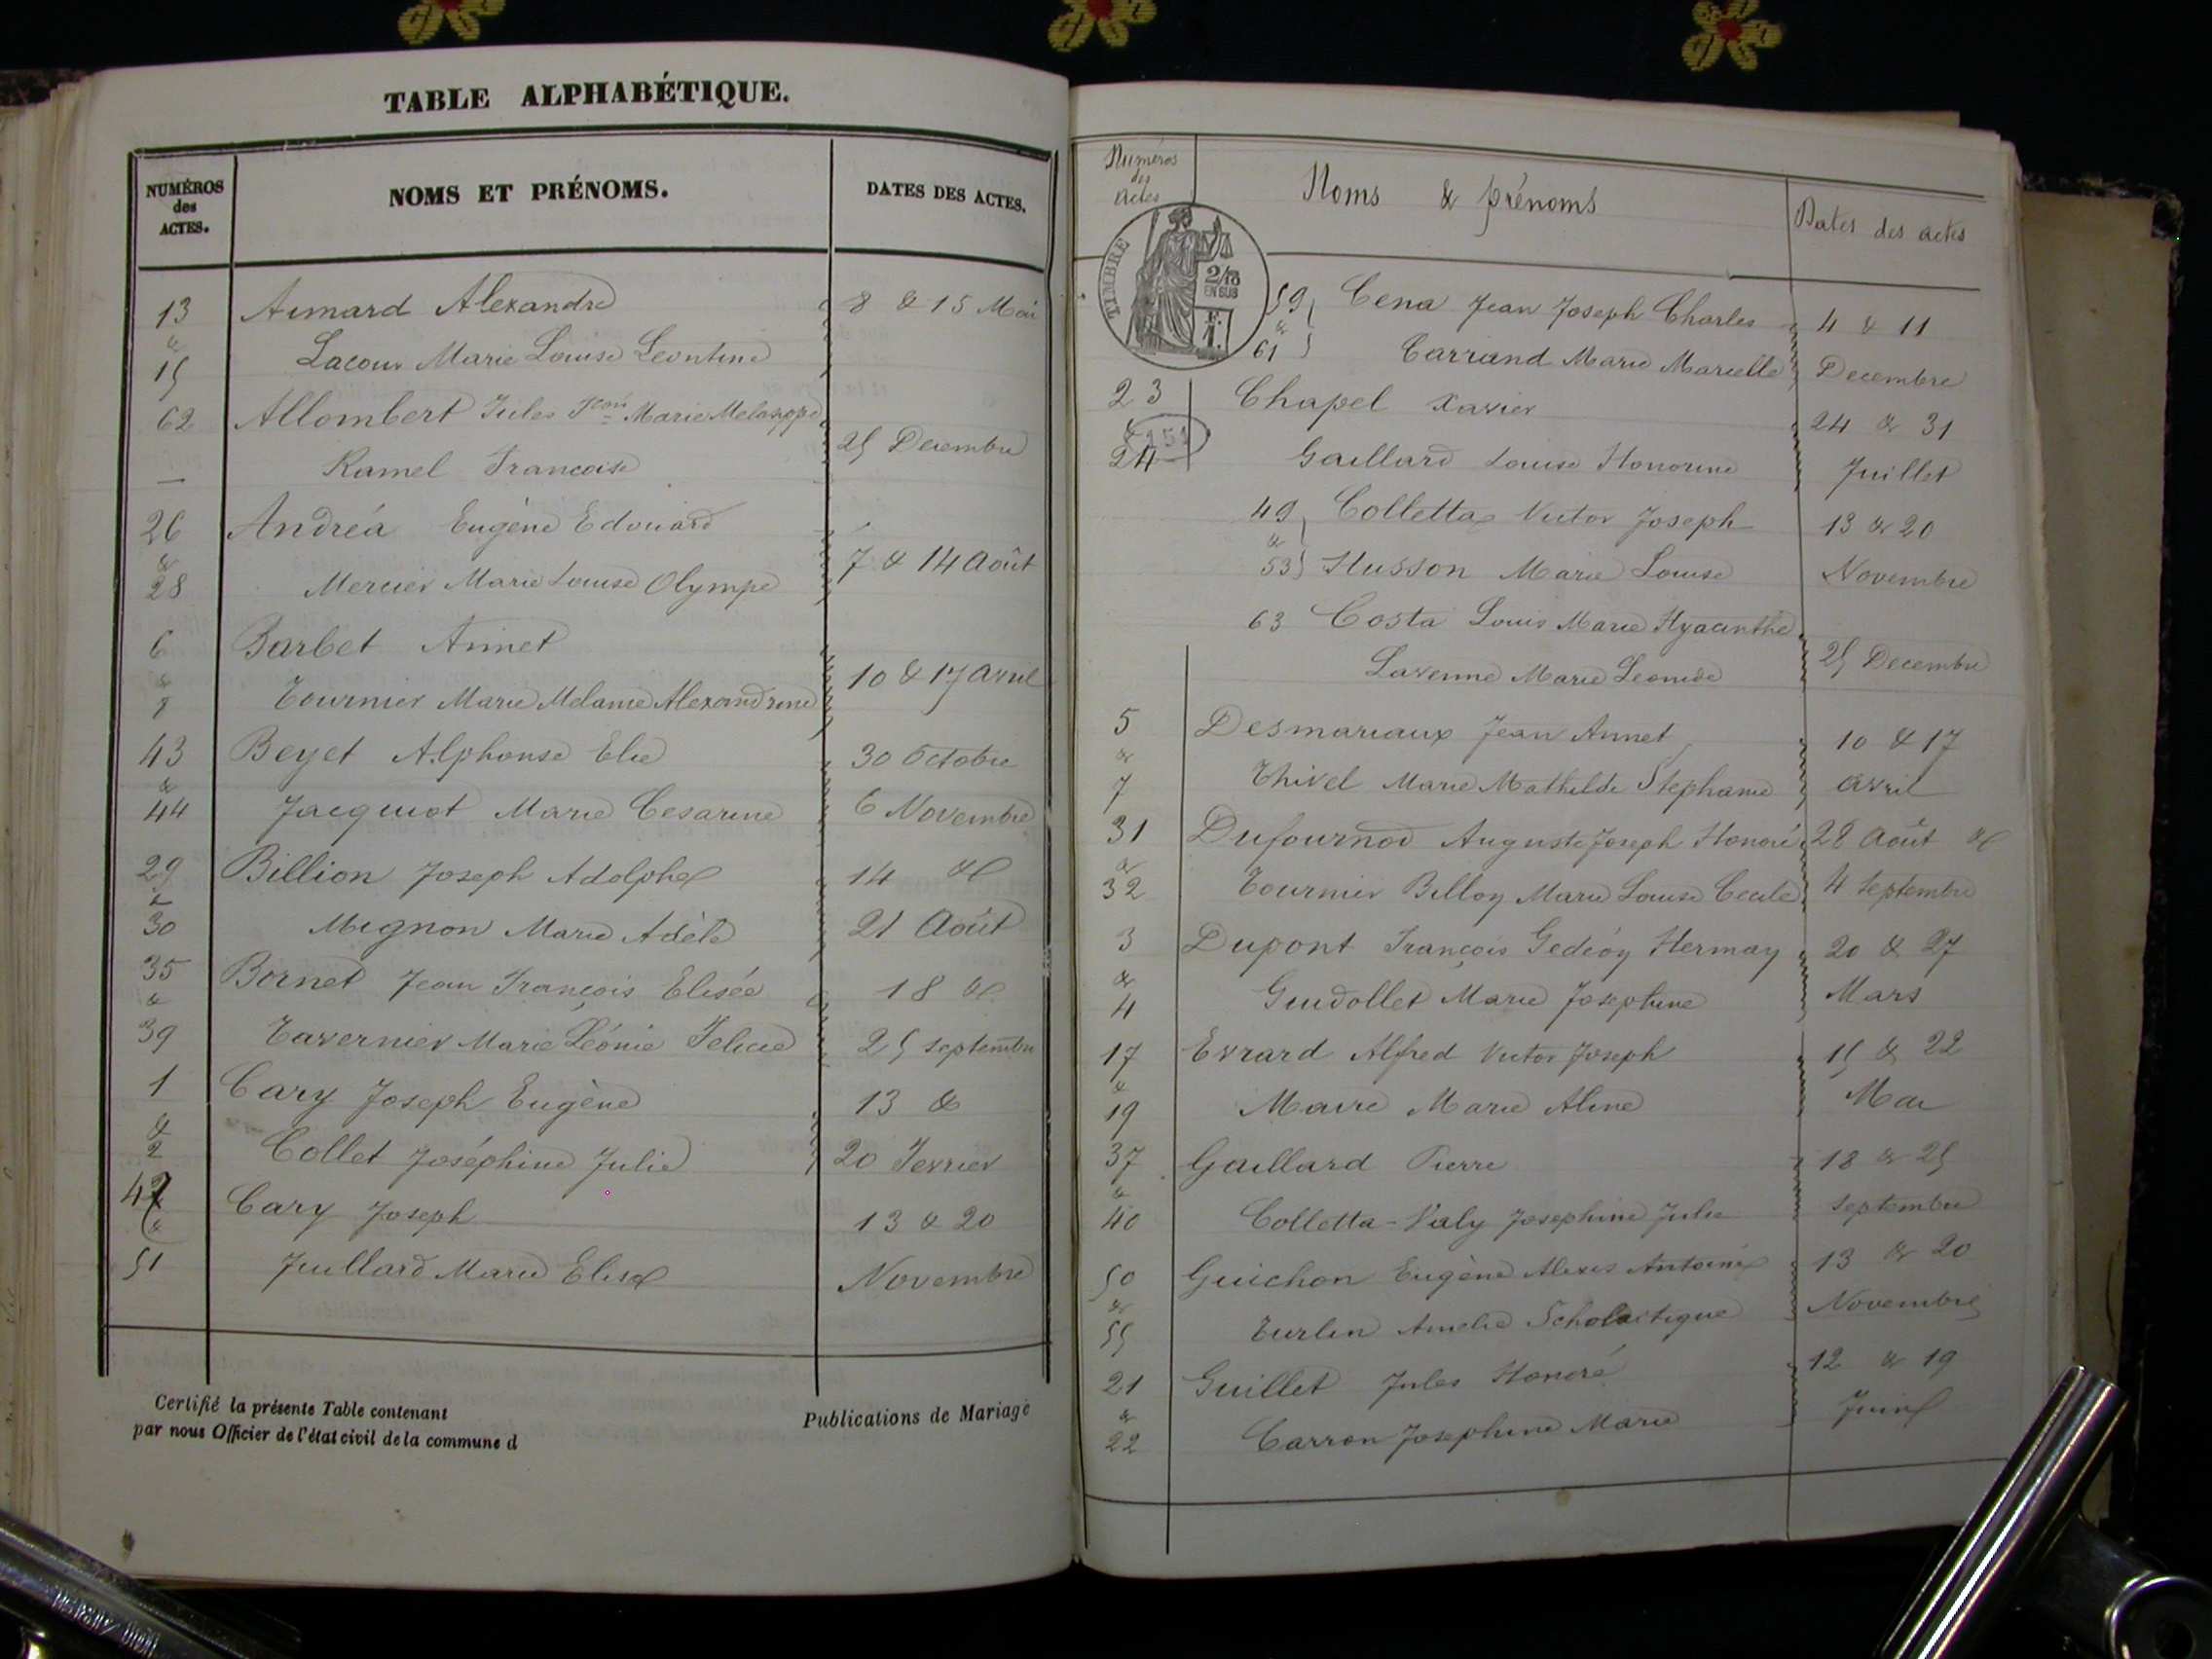 TABLE ALPHABÉTIQUE.
NUMÉROS des ACTES.
NOMS ET PRÉNOMS.
DATES DES ACTES.
13 Aimard Alexandre 8 & 15 Mai
&
15 Lacour Marie Louise Leontine
62 Allombert Jules Marie
25 Decembre
— Ramel Francoise
26 Andréa Eugène Edouard
& 7 & 14 Août
28 Mercier Marie Louise Olympe
6 Barbet Annet
& 10 & 17 Avril
8 Tournier Marie Melanie Alexandrine
43 Beyet Alphonse Elie 30 Octobre
&
44 Jacquiot Marie Cesarine 6 Novembre
29 Billion Joseph Adolphe 14 &
&
30 Mignon Marie Adèle 21 Août
35 Bornet Jean François Elisée 18 &
&
39 Tavernier Marie Léonie Felicie 25 septembre
1 Cary Joseph Eugène 13 &
&
2 Collet Joséphine Julie 20 Fevrier
Cary Joseph 13 & 20
&
51 Juillard Marie Elise Novembre
Certifié la présente Table contenant Publications de Mariage
par nous Officier de l'état civil de la commune d
Numéros des actes
Noms & prénoms
Dates des actes
TIMBRE
2/10 EN SUS
1 F.
59 Cena Jean Joseph Charles 4 & 11
&
61 Carrand Marie Marcelle Decembre
23 Chapel Xavier 24 & 31
& 151
24 Gaillard Louise Honorine Juillet
49 Colletta Victor Joseph 13 & 20
&
53 Husson Marie Louise Novembre
63 Costa Louis Marie Hyacinthe
Lavenne Marie Leonide 25 Decembre
5 Desmariaux Jean Annet 10 & 17
&
7 Thivel Marie Mathilde Stephanie avril
31 Dufournod Auguste Joseph Honoré 28 Août &
&
32 Tournier Billoy Marie Louise Cecile 4 Septembre
3 Dupont François Gedéon Herman 20 & 27
&
4 Guidollet Marie Josephine Mars
17 Evrard Alfred Victor Joseph 15 & 22
&
19 Maire Marie Aline Mai
37 Gaillard Pierre 18 & 25
&
40 Colletta-Valy Josephine Julie Septembre
50 Guichon Eugène Alexis Antoine 13 & 20
&
55 Turlin Amelie Scholastique Novembre
21 Guillet Jules Honoré 12 & 19
&
22 Carron Josephine Marie Juin